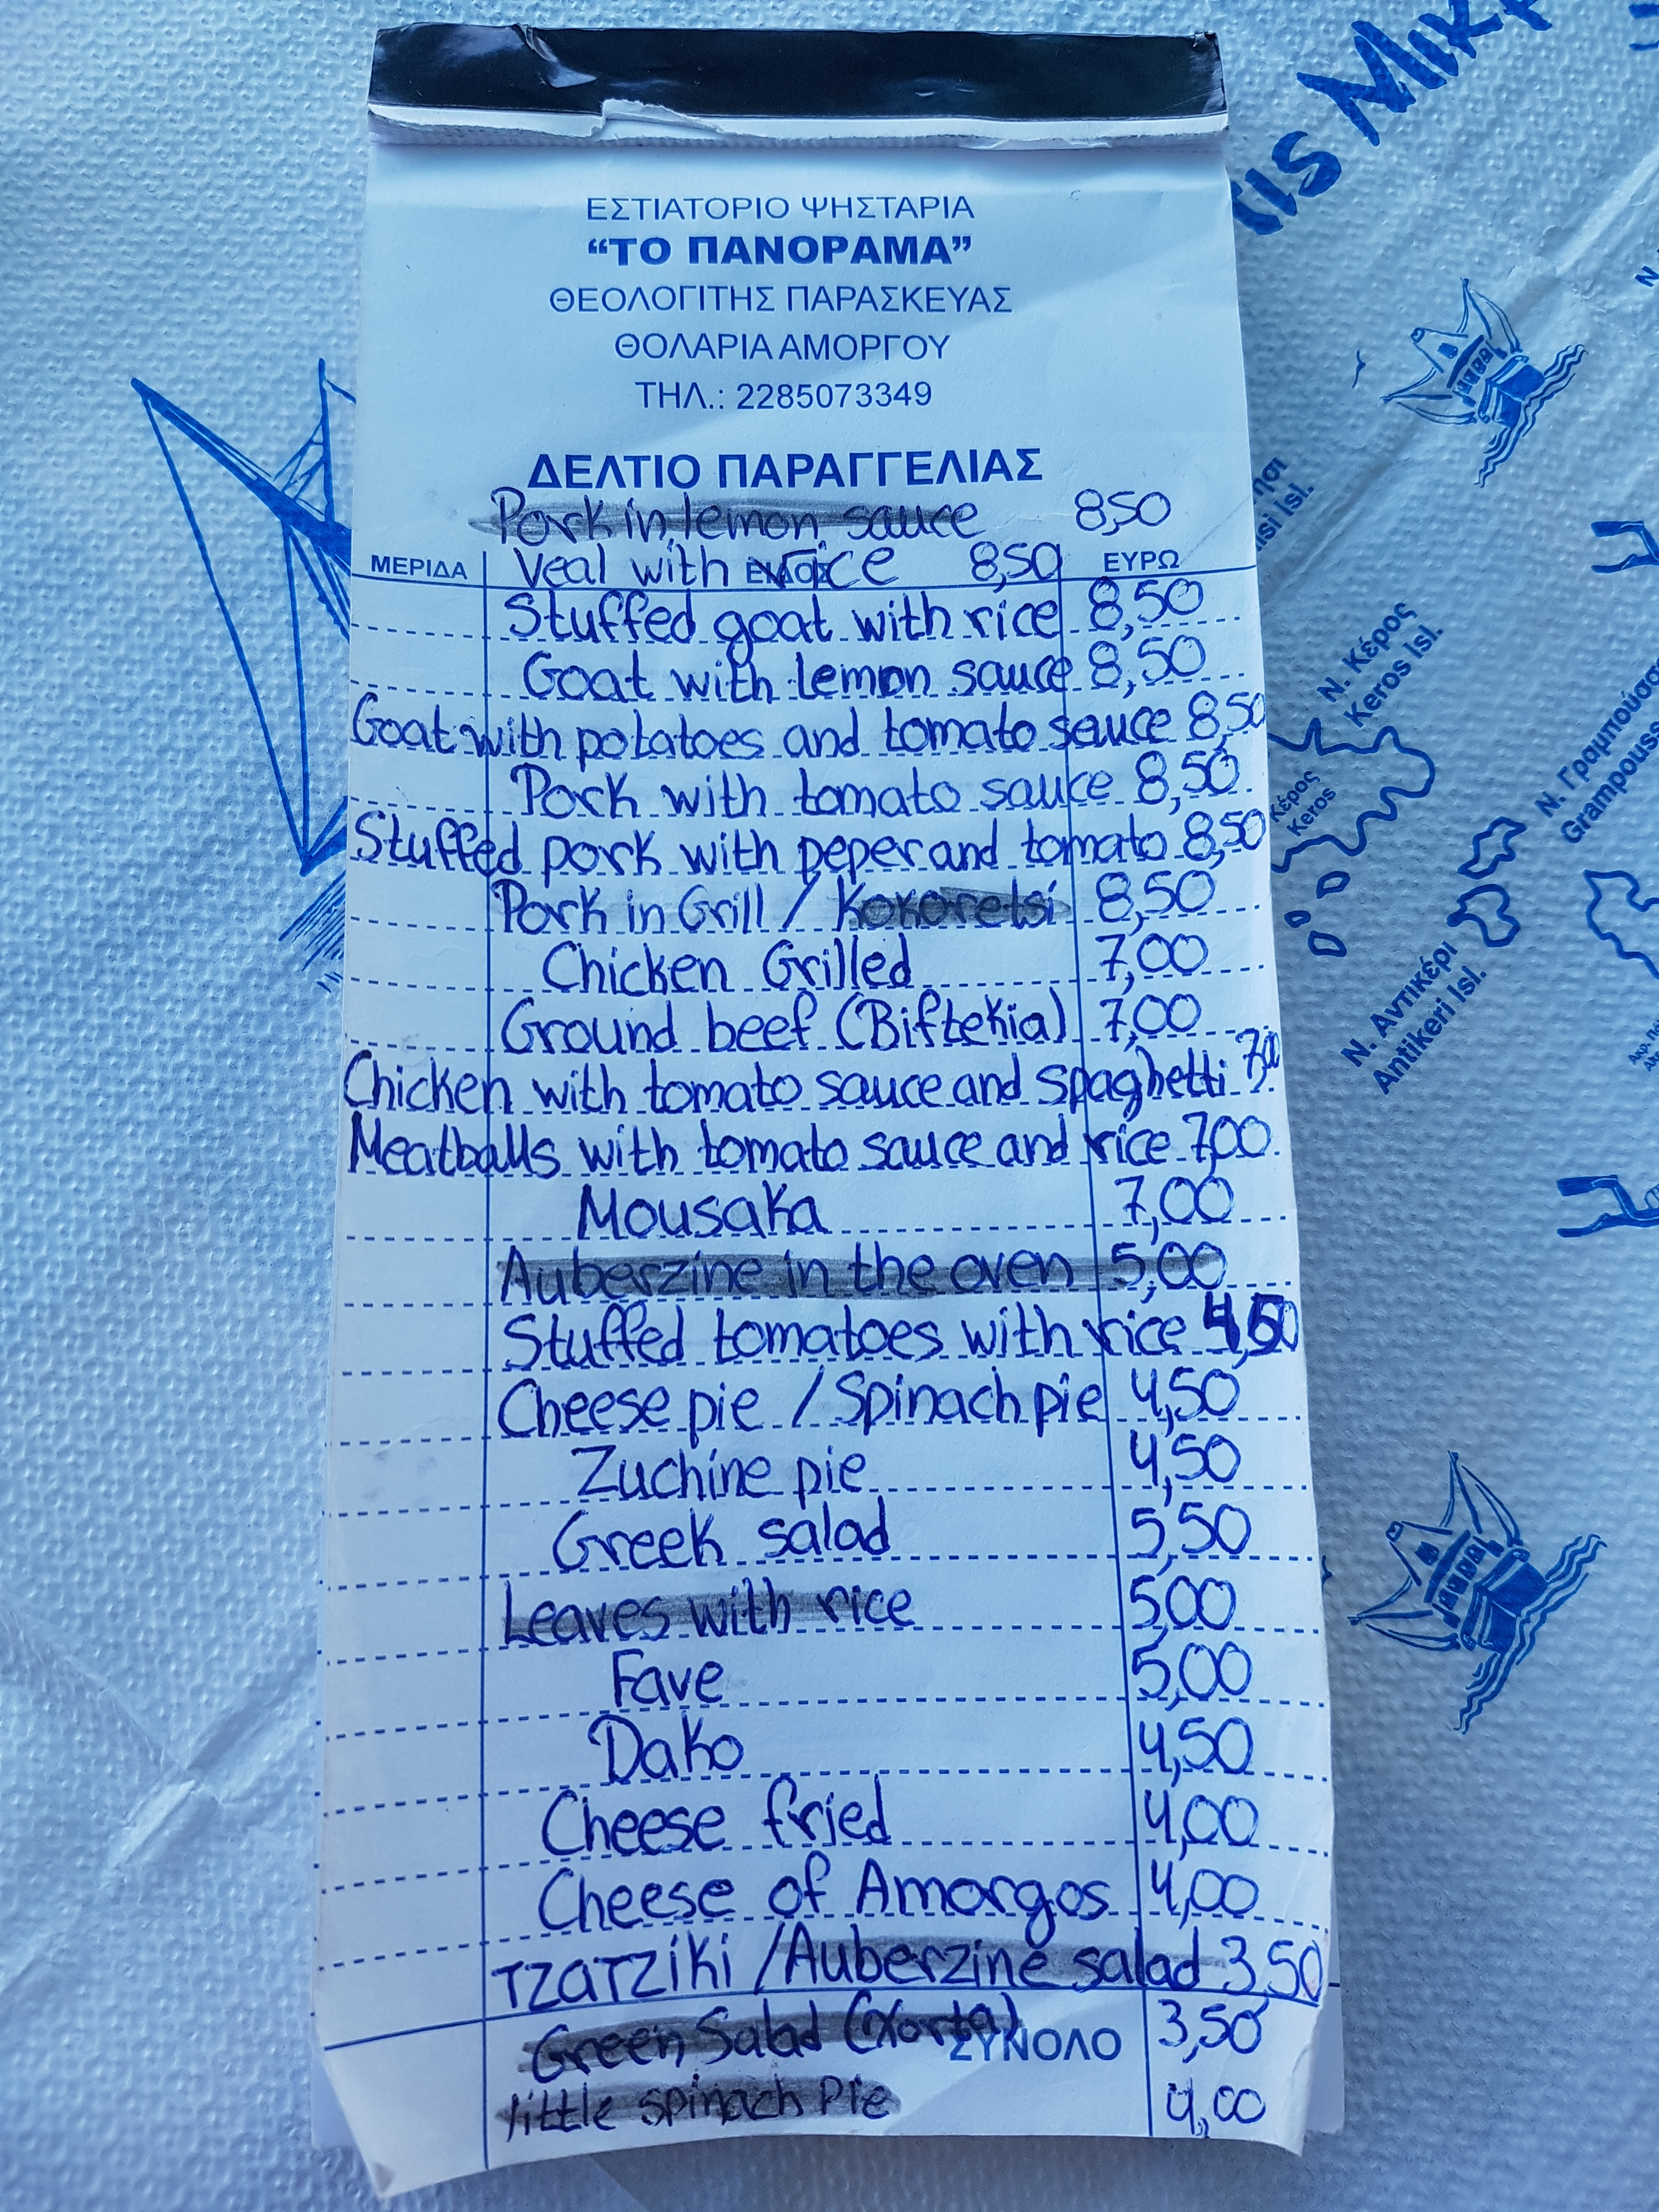 τις Μικρ
ΕΣΤΙΑΤΟΡΙΟ ΨΗΣΤΑΡΙΑ
“ΤΟ ΠΑΝΟΡΑΜΑ”
ΘΕΟΛΟΓΙΤΗΣ ΠΑΡΑΣΚΕΥΑΣ
ΘΟΛΑΡΙΑ ΑΜΟΡΓΟΥ
ΤΗΛ.: 2285073349
ΔΕΛΤΙΟ ΠΑΡΑΓΓΕΛΙΑΣ
Pork in lemon sauce 8,50
ΜΕΡΙΔΑ ΕΙΔΟΣ ΕΥΡΩ
Veal with rice 8,50
Stuffed goat with rice 8,50
Goat with lemon sauce 8,50
Goat with potatoes and tomato sauce 8,50
Pork with tomato sauce 8,50
Stuffed pork with peper and tomato 8,50
Pork in Grill / Kokoretsi 8,50
Chicken Grilled 7,00
Ground beef (Biftekia) 7,00
Chicken with tomato sauce and spaghetti 7,00
Meatballs with tomato sauce and rice 7,00
Mousaka 7,00
Auberzine in the oven 5,00
Stuffed tomatoes with rice 4,50
Cheese pie / Spinach pie 4,50
Zuchine pie 4,50
Greek salad 5,50
Leaves with rice 5,00
Fave 5,00
Dako 4,50
Cheese fried 4,00
Cheese of Amorgos 4,00
TZATZiKi / Auberzine salad 3,50
Green Salad (Xorta) 3,50
ΣΥΝΟΛΟ
little spinach Pie 4,00
Ν. Κέρος
Keros Isl.
Κέρος
Keros
Ν. Γραμπούσα
Grampouss
Ν. Αντικέρι
Antikeri Isl.